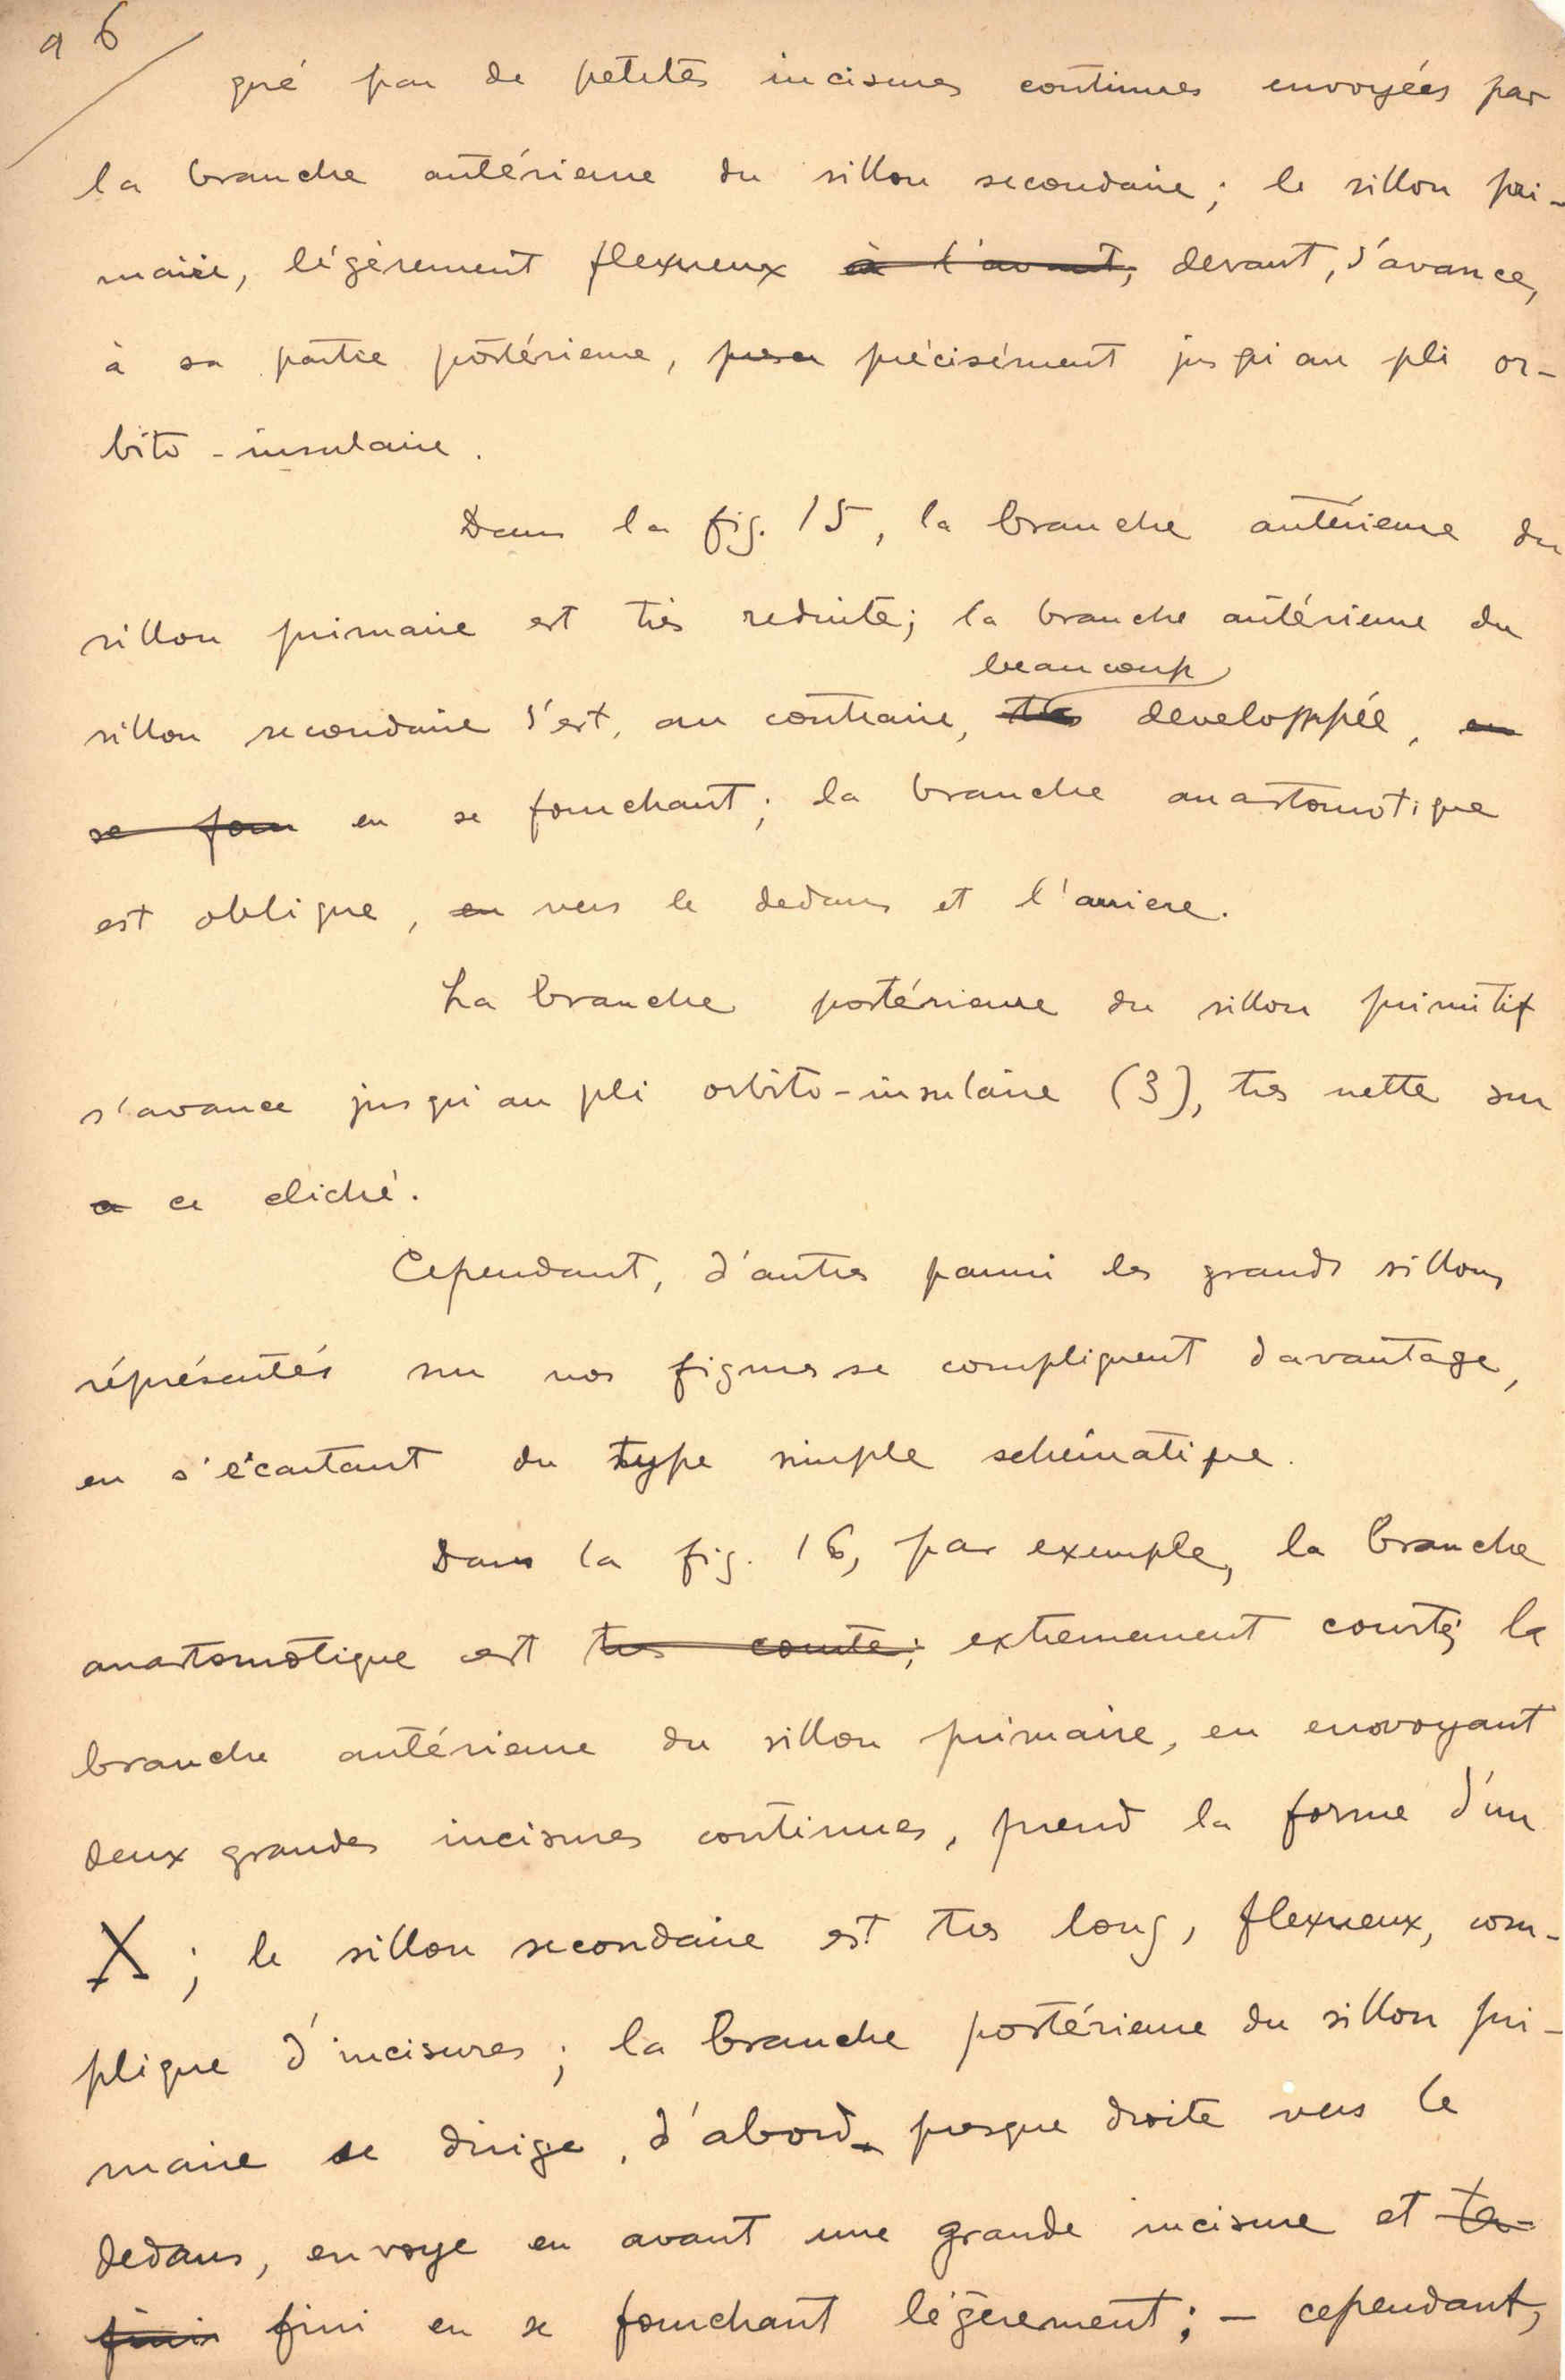 a 6
qué par de petites incisures continues envoyées par
la branche antérieure du sillon secondaire ; le sillon pri-
maire, légèrement flexueux à l'avant, devant, s'avance,
à sa partie postérieure, précisément jusqu'au pli or-
bito-insulaire.
Dans la fig. 15, la branche antérieure du
sillon primaire est très reduite; la branche antérieure du
beaucoup
sillon secondaire s'est, au contraire, très developpée, en
se four en se fourchant ; la branche anastomotique
est oblique, en vers le dedans et l'arriere.
La branche postérieure du sillon primitif
s'avance jusqu'au pli orbito-insulaire (3), tres nette sur
a ce cliché.
Cependant, d'autres parmi les grands sillons
réprésentés sur nos figures se compliquent davantage,
en s'écartant du type simple schématique.
Dans la fig. 16, par exemple, la branche
anastomotique est tres courte; extremement courte; la
branche antérieure du sillon primaire, en envoyant
deux grandes incisures continues, prend la forme d'un
X ; le sillon secondaire est tres long, flexueux, com-
pliqué d'incisures ; la branche postérieure du sillon pri-
maire se dirige, d'abord presque droite vers le
dedans, envoye en avant une grande incisure et
finir fini en se fourchant légèrement ; – cependant,